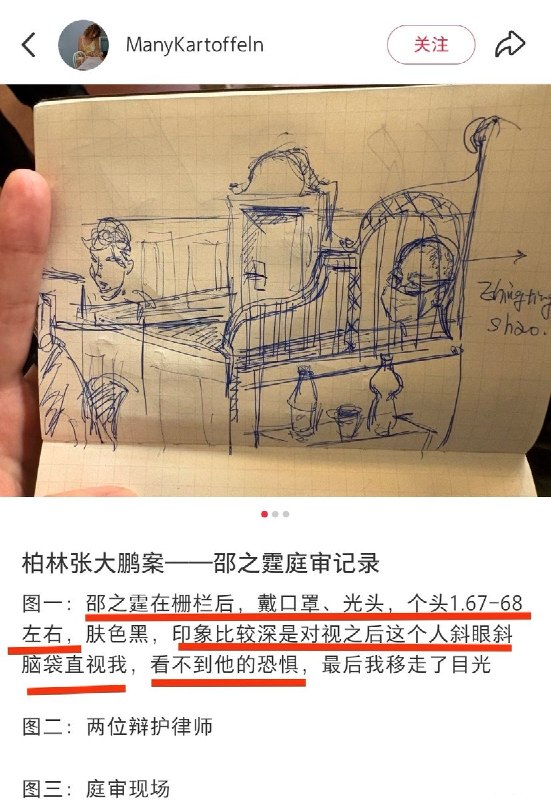 ManyKartoffeln
关注
Zhingting
Shao.
柏林张大鹏案——邵之霆庭审记录
图一：邵之霆在栅栏后，戴口罩、光头，个头1.67-68
左右，肤色黑，印象比较深是对视之后这个人斜眼斜
脑袋直视我，看不到他的恐惧，最后我移走了目光
图二：两位辩护律师
图三：庭审现场